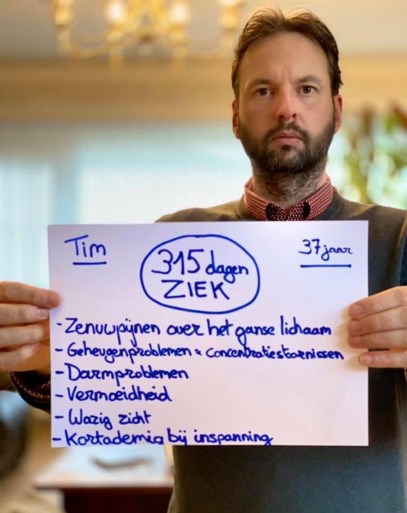 Tim
37 jaar
315 dagen
ZIEK
- Zenuwpijnen over het ganse lichaam
- Geheugenproblemen & concentratiestoornissen
- Darmproblemen
- Vermoeidheid
- Wazig zicht
- Kortademig bij inspanning